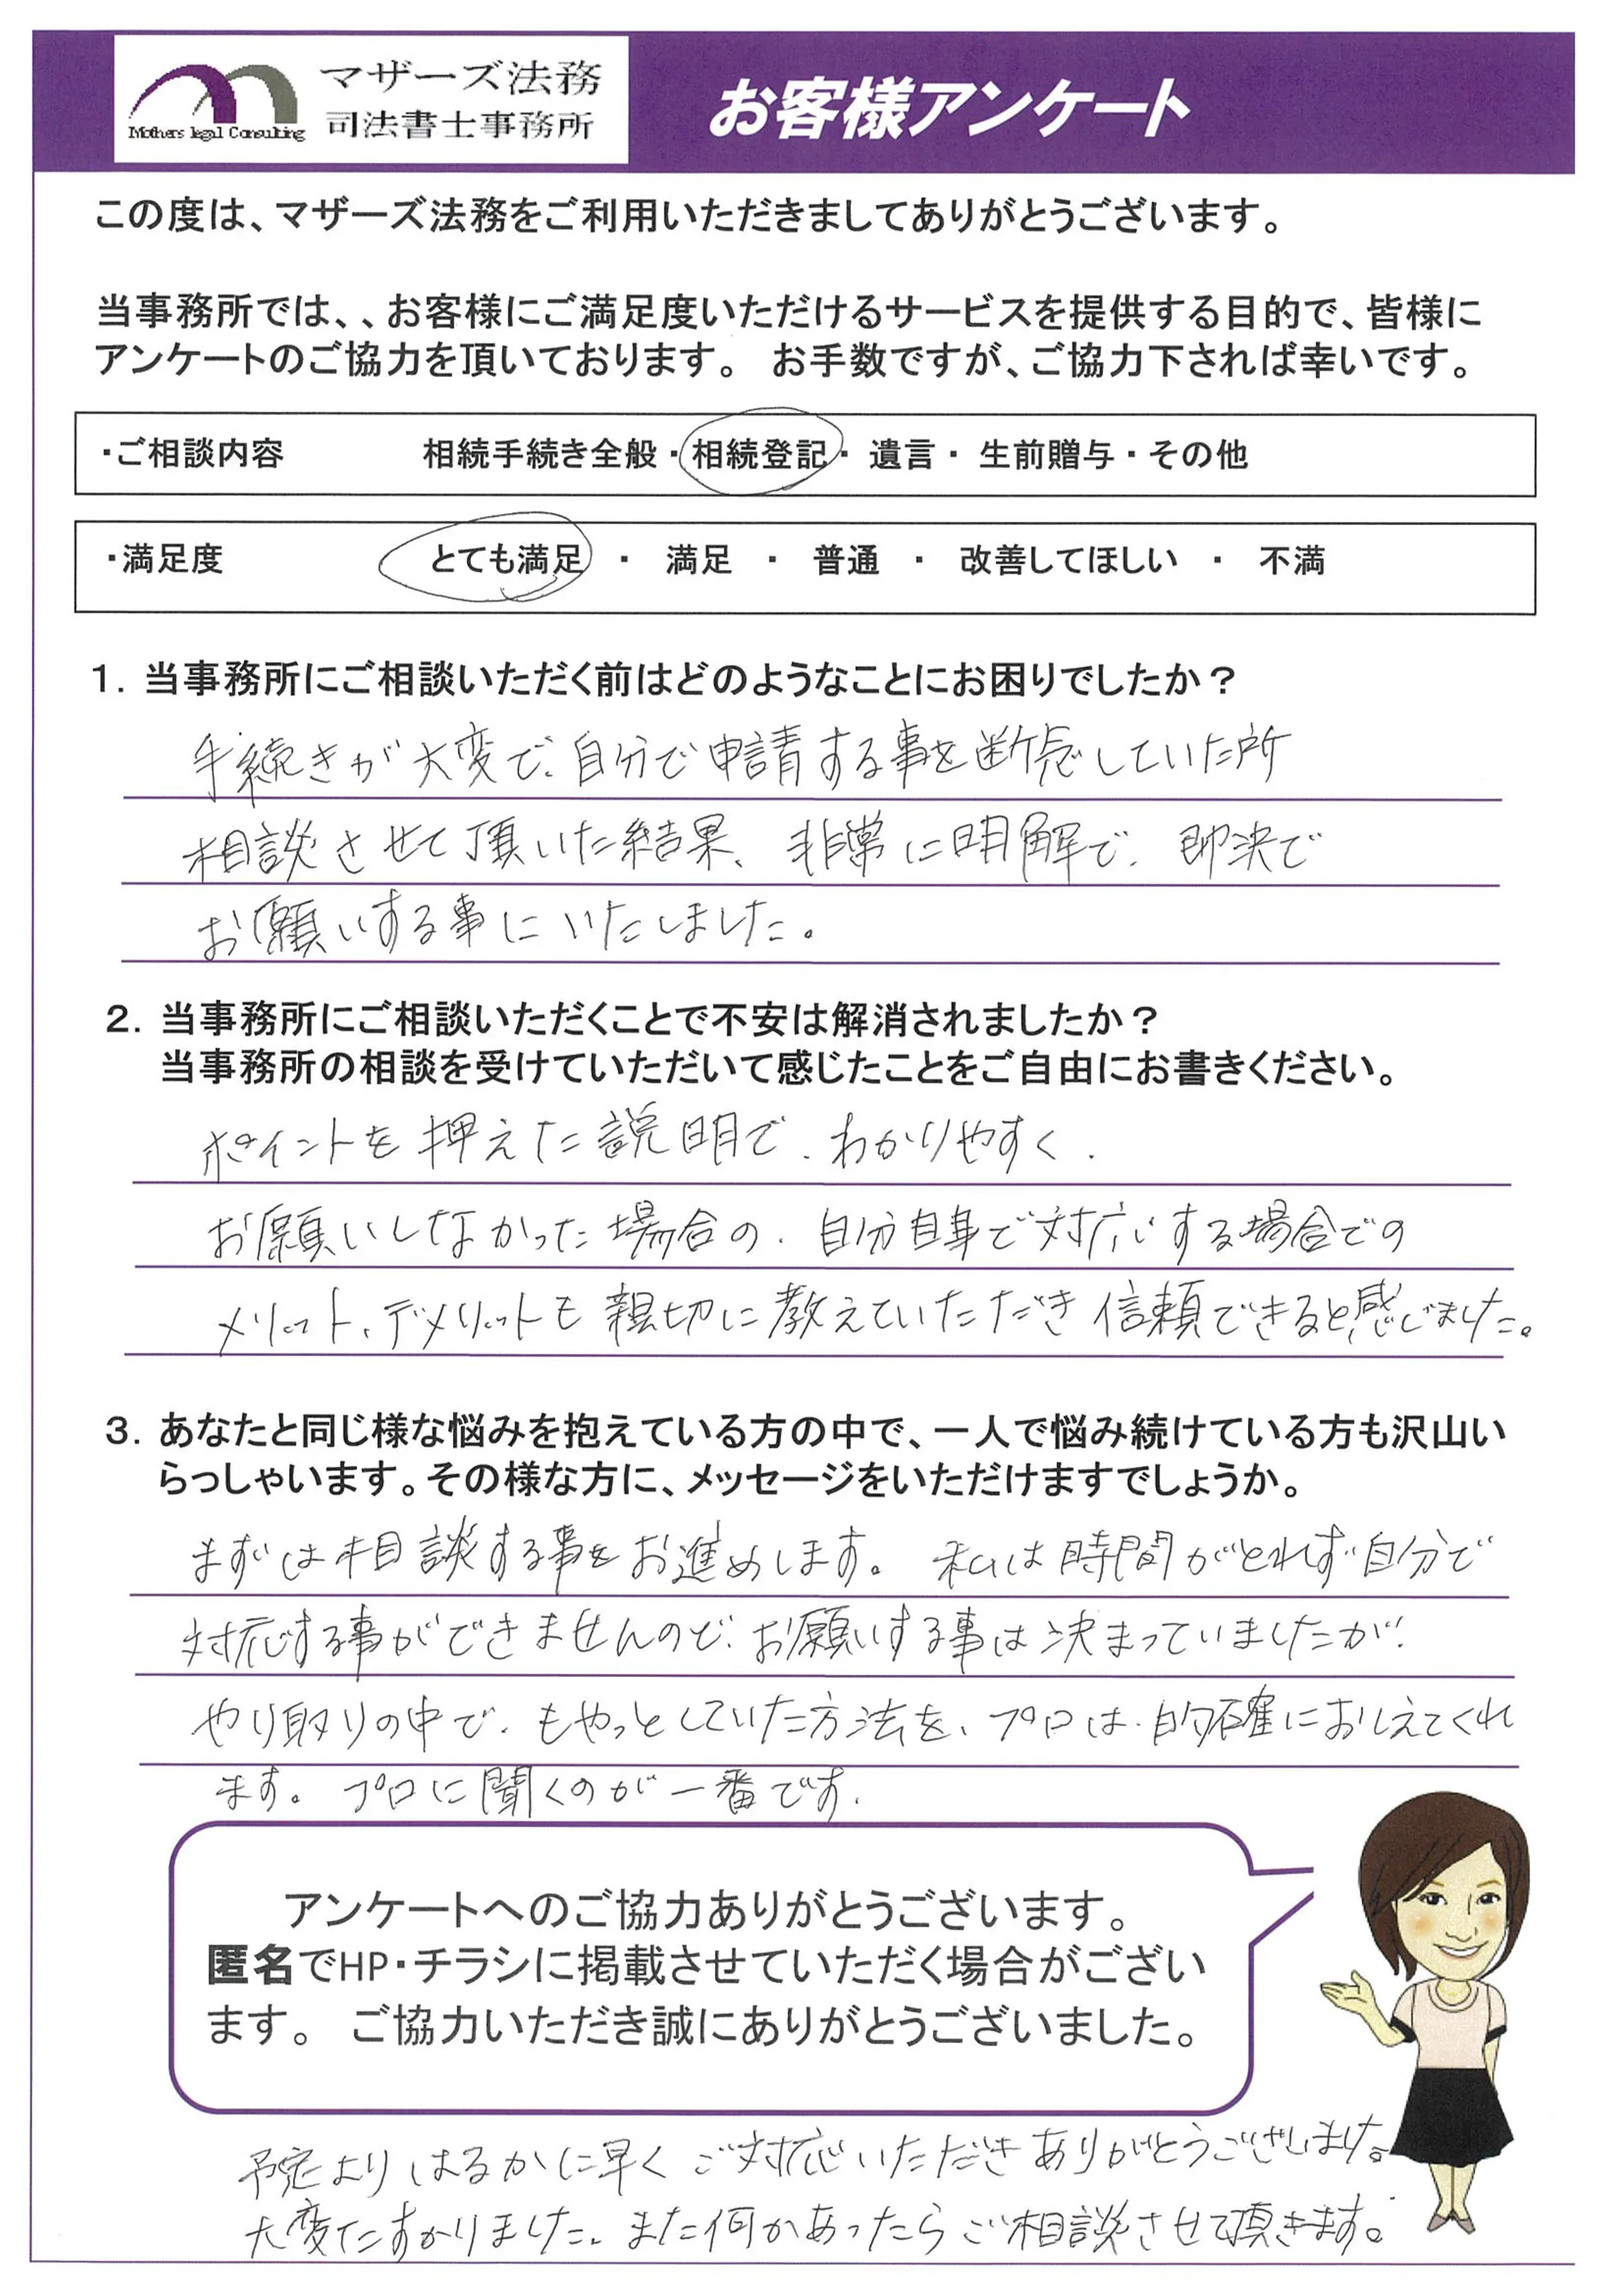 マザーズ法務
司法書士事務所
Mothers legal Consulting
お客様アンケート
この度は、マザーズ法務をご利用いただきましてありがとうございます。
当事務所では、、お客様にご満足度いただけるサービスを提供する目的で、皆様に
アンケートのご協力を頂いております。 お手数ですが、ご協力下されば幸いです。
・ご相談内容 相続手続き全般・相続登記・遺言・生前贈与・その他
・満足度 とても満足 ・ 満足 ・ 普通 ・ 改善してほしい ・ 不満
1. 当事務所にご相談いただく前はどのようなことにお困りでしたか？
手続きが大変で、自分で申請する事を断念していた所
相談させて頂いた結果、非常に明解で、即決で
お願いする事にいたしました。
2. 当事務所にご相談いただくことで不安は解消されましたか？
当事務所の相談を受けていただいて感じたことをご自由にお書きください。
ポイントを押えた説明で、わかりやすく、
お願いしなかった場合の、自分自身で対応する場合での
メリット、デメリットも親切に教えていただき信頼できると感じました。
3. あなたと同じ様な悩みを抱えている方の中で、一人で悩み続けている方も沢山い
らっしゃいます。その様な方に、メッセージをいただけますでしょうか。
まずは相談する事をお進めします。私は時間がとれず自分で
対応する事ができませんので、お願いする事は決まっていましたが、
やり取りの中で、もやっとしていた方法を、プロは、的確におしえてくれ
ます。プロに聞くのが一番です。
アンケートへのご協力ありがとうございます。
匿名でHP・チラシに掲載させていただく場合がござい
ます。 ご協力いただき誠にありがとうございました。
予定よりはるかに早くご対応いただきありがとうございました。
大変たすかりました。また何かあったらご相談させて頂きます。